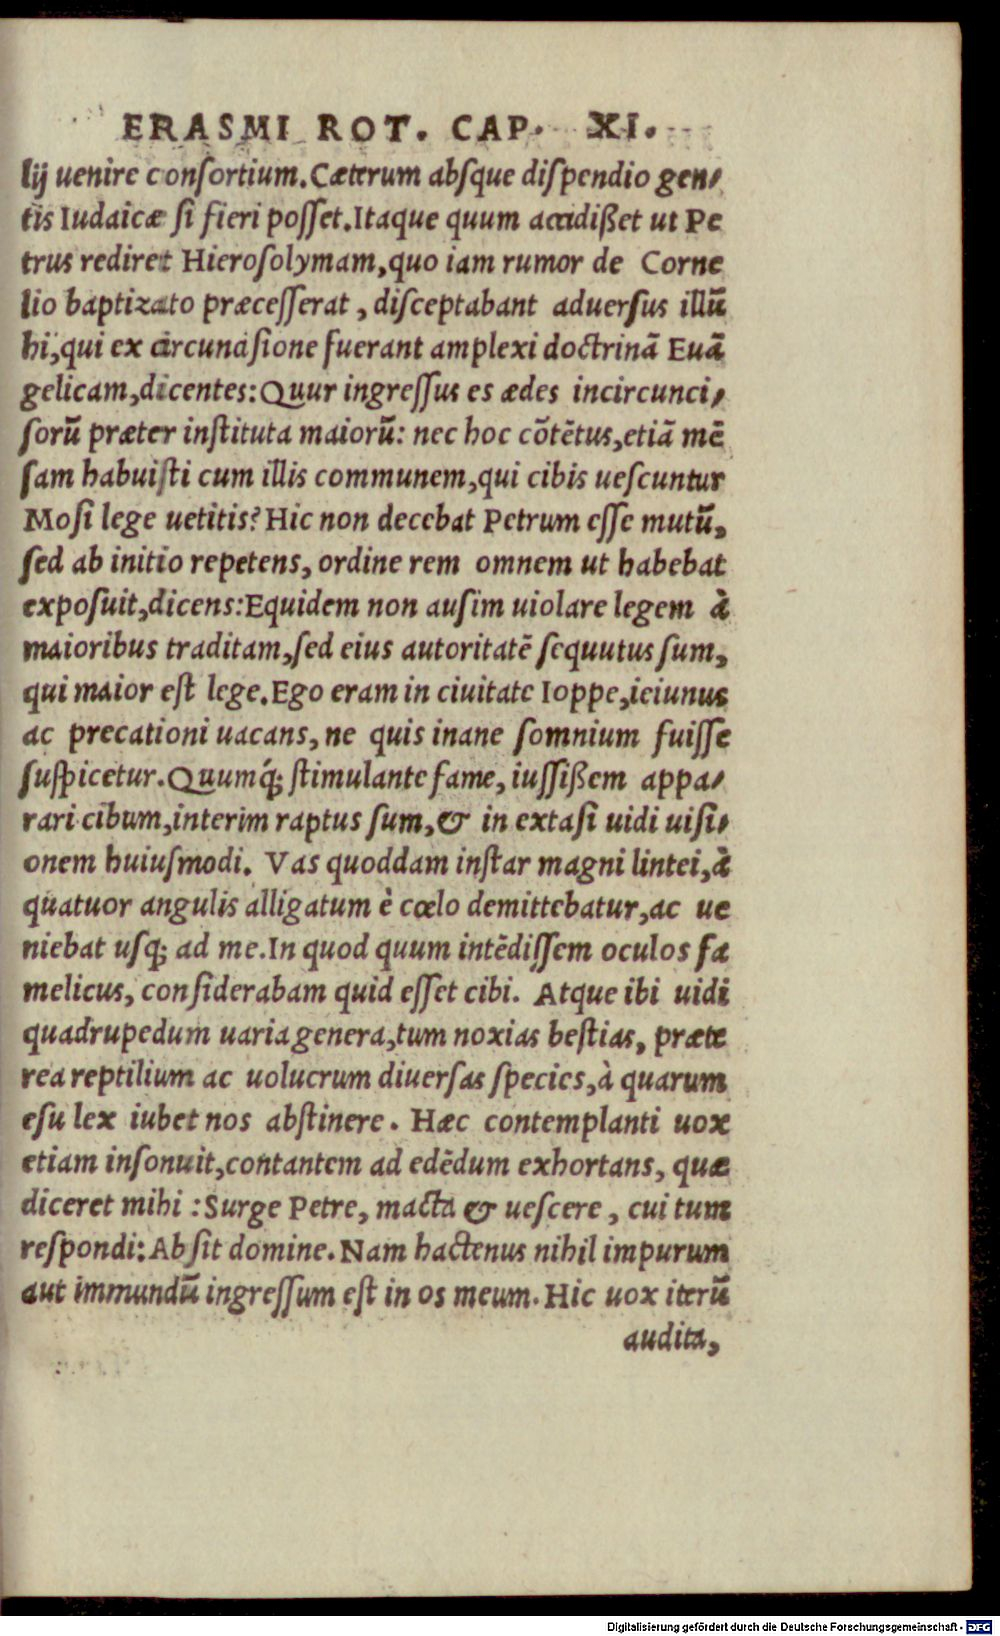 ERASMI ROT. CAP. XI.
lij uenire conſortium. Cæterum abſque diſpendio gen-
tis Iudaicæ ſi fieri poſſet. Itaque quum accidißet ut Pe
trus rediret Hieroſolymam, quo iam rumor de Corne
lio baptizato præceſſerat, diſceptabant aduerſus illũ
hi, qui ex circunciſione fuerant amplexi doctrinã Euã
gelicam, dicentes: Quur ingreſſus es ædes incircunci-
ſorũ præter inſtituta maiorũ: nec hoc cõtẽtus, etiã mẽ
ſam habuiſti cum illis communem, qui cibis ueſcuntur
Moſi lege uetitis? Hic non decebat Petrum eſſe mutũ,
ſed ab initio repetens, ordine rem omnem ut habebat
expoſuit, dicens: Equidem non auſim uiolare legem à
maioribus traditam, ſed eius autoritatẽ ſequutus ſum,
qui maior eſt lege. Ego eram in ciuitate Ioppe, ieiunus
ac precationi uacans, ne quis inane ſomnium fuiſſe
ſuſpicetur. Quumq́; ſtimulante fame, iuſſißem appa-
rari cibum, interim raptus ſum, & in extaſi uidi uiſi-
onem huiuſmodi. Vas quoddam inſtar magni lintei, à
quatuor angulis alligatum è cœlo demittebatur, ac ue
niebat uſq; ad me. In quod quum intẽdiſſem oculos fa
melicus, conſiderabam quid eſſet cibi. Atque ibi uidi
quadrupedum uaria genera, tum noxias beſtias, præte
rea reptilium ac uolucrum diuerſas ſpecies, à quarum
eſu lex iubet nos abſtinere. Hæc contemplanti uox
etiam inſonuit, contantem ad edẽdum exhortans, quæ
diceret mihi: Surge Petre, macta & ueſcere, cui tum
reſpondi: Abſit domine. Nam hactenus nihil impurum
aut immundũ ingreſſum eſt in os meum. Hic uox iterũ
audita,
Digitalisierung gefördert durch die Deutsche Forschungsgemeinschaft - DFG